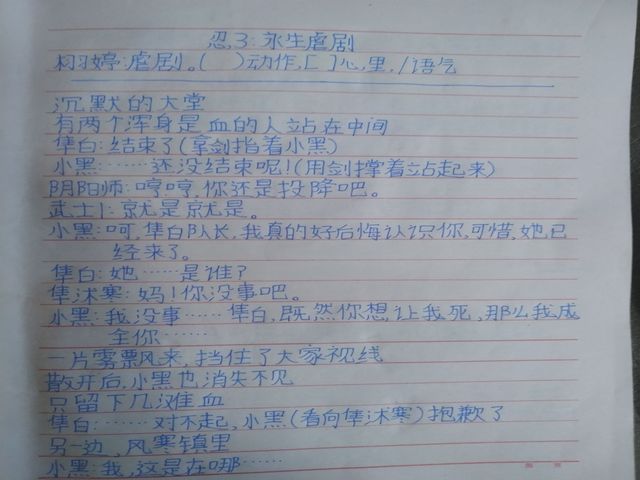 忍3:永生虐剧
柯羽婷:虐剧。( )动作,[ ]心里,/语气
沉默的大堂
有两个浑身是血的人站在中间
隼白:结束了(拿剑指着小黑)
小黑:……还没结束呢!(用剑撑着站起来)
阴阳师:哼哼,你还是投降吧。
武士1:就是就是。
小黑:呵,隼白队长,我真的好后悔认识你,可惜,她已
经来了。
隼白:她……是谁?
隼沭寒:妈!你没事吧。
小黑:我没事……隼白,既然你想让我死,那么我成
全你……
一片雾飘风来,挡住了大家视线
散开后,小黑也消失不见
只留下几滩血
隼白:……对不起,小黑(看向隼沭寒)抱歉了
另一边,风寒镇里
小黑:我,这是在哪……